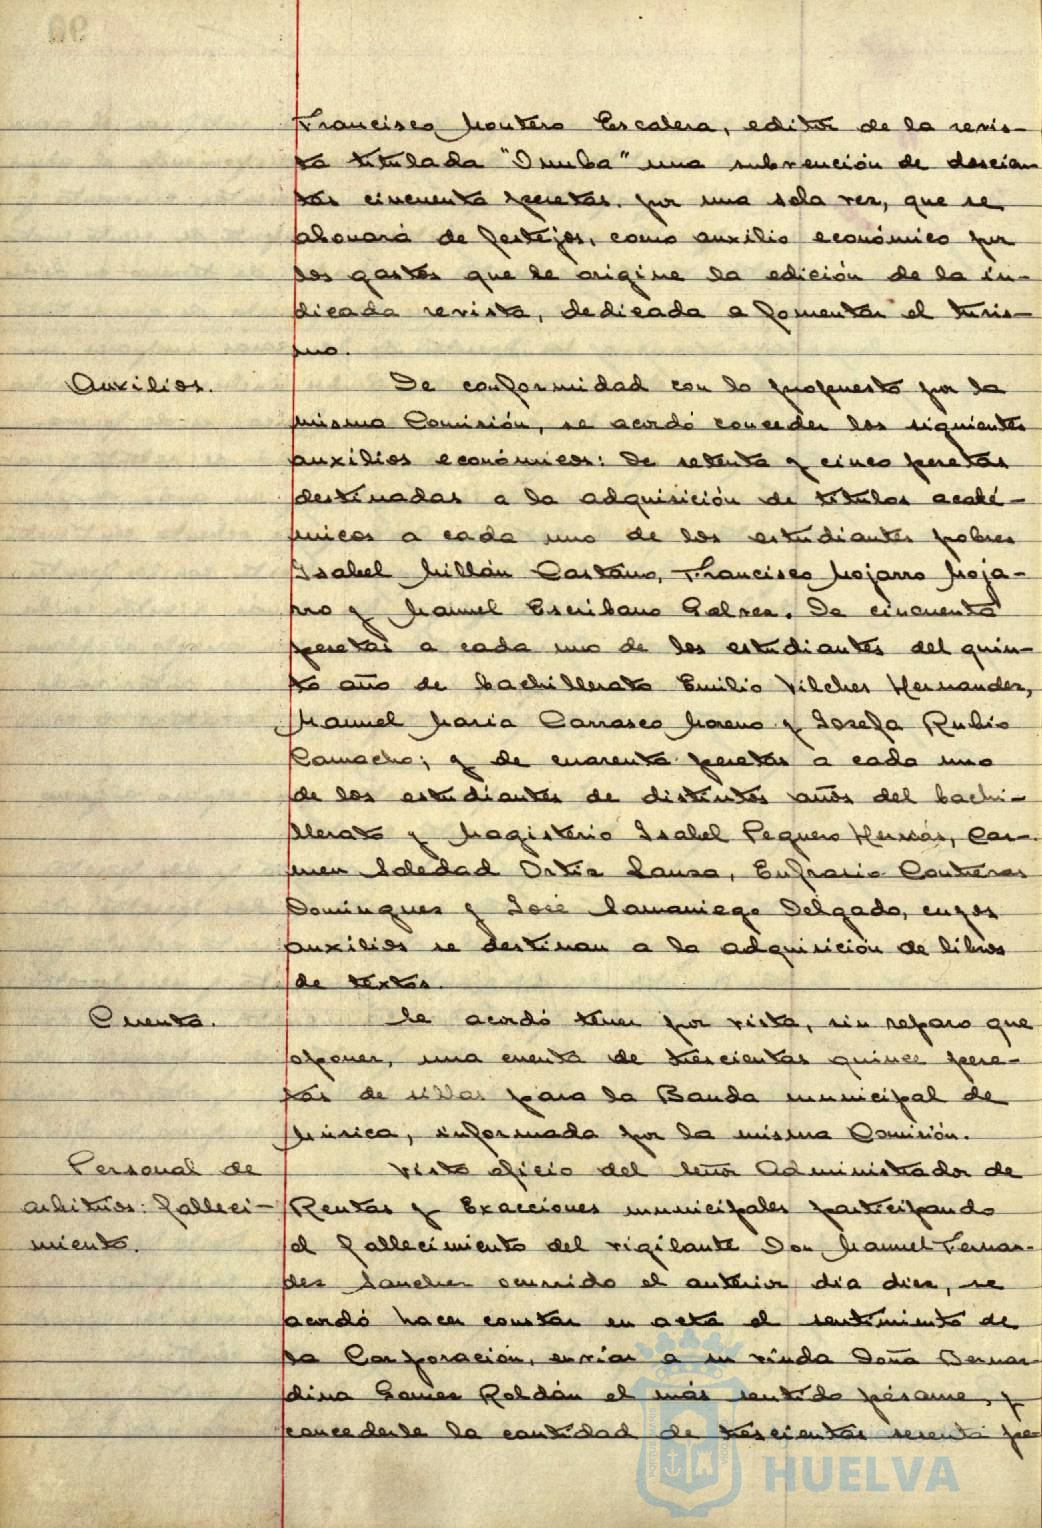 Francisco Montero Escalera, editor de la revis-
ta titulada "Onuba" una subvención de doscien-
tas cincuenta pesetas, por una sola vez, que se
abonará de festejos, como auxilio económico por
los gastos que le origine la edición de la in-
dicada revista, dedicada a fomentar el turis-
mo.
Auxilios.
De conformidad con lo propuesto por la
misma Comisión, se acordó conceder los siguientes
auxilios económicos: De setenta y cinco pesetas
destinadas a la adquisición de títulos acadé-
micos a cada uno de los estudiantes pobres
Isabel Millán Castaño, Francisco Mojarro Moja-
rro y Manuel Escribano Galvez. De cincuenta
pesetas a cada uno de los estudiantes del quin-
to año de bachillerato Emilio Vilches Hernandez,
Manuel Maria Carrasco Moreno y Josefa Rubio
Camacho; y de cuarenta pesetas a cada uno
de los estudiantes de distintos años del bachi-
llerato y Magisterio Isabel Peguero Hervás, Car-
men Soledad Ortiz Sauza, Eufrasio Contreras
Dominguez y José Samaniego Delgado, cuyos
auxilios se destinan a la adquisición de libros
de textos.
Cuenta.
Se acordó tener por vista, sin reparo que
oponer, una cuenta de trescientas quince pese-
tas de sillas para la Banda municipal de
Música, informada por la misma Comisión.
Personal de
arbitrios: falleci-
miento.
Visto oficio del Señor Administrador de
Rentas y Exacciones municipales participando
el fallecimiento del vigilante Don Manuel Fernan-
dez Sanchez ocurrido el anterior día diez, se
acordó hacer constar en acta el sentimiento de
la Corporación, enviar a su viuda Doña Bernar-
dina Gomez Roldán el más sentido pésame, y
concederle la cantidad de trescientas sesenta pe-
HUELVA